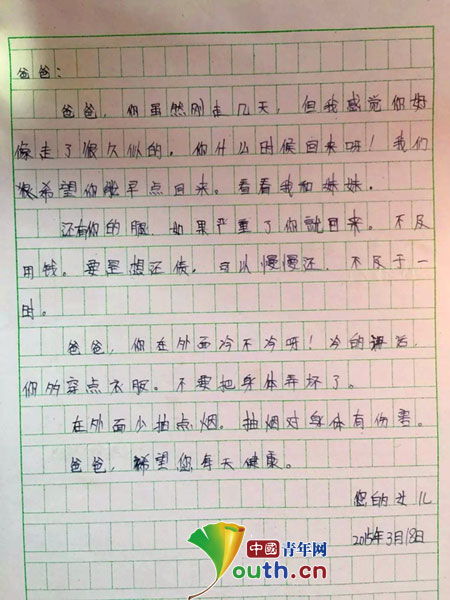 爸爸：
爸爸，你虽然刚走几天，但我感觉你好
像走了很久似的。你什么时候回来呀！我们
很希望你能早点回来。看看我和妹妹。
还有你的腿，如果严重了你就回来。不及
用钱。要是想还债，可以慢慢还，不及于一
时。
爸爸，你在外面冷不冷呀！冷的话，
你多穿点衣服。不要把身体弄坏了。
在外面少抽点烟。抽烟对身体有伤害。
爸爸，希望您每天健康。
您的女儿
2015年3月18日
中國青年网
Youth.cn